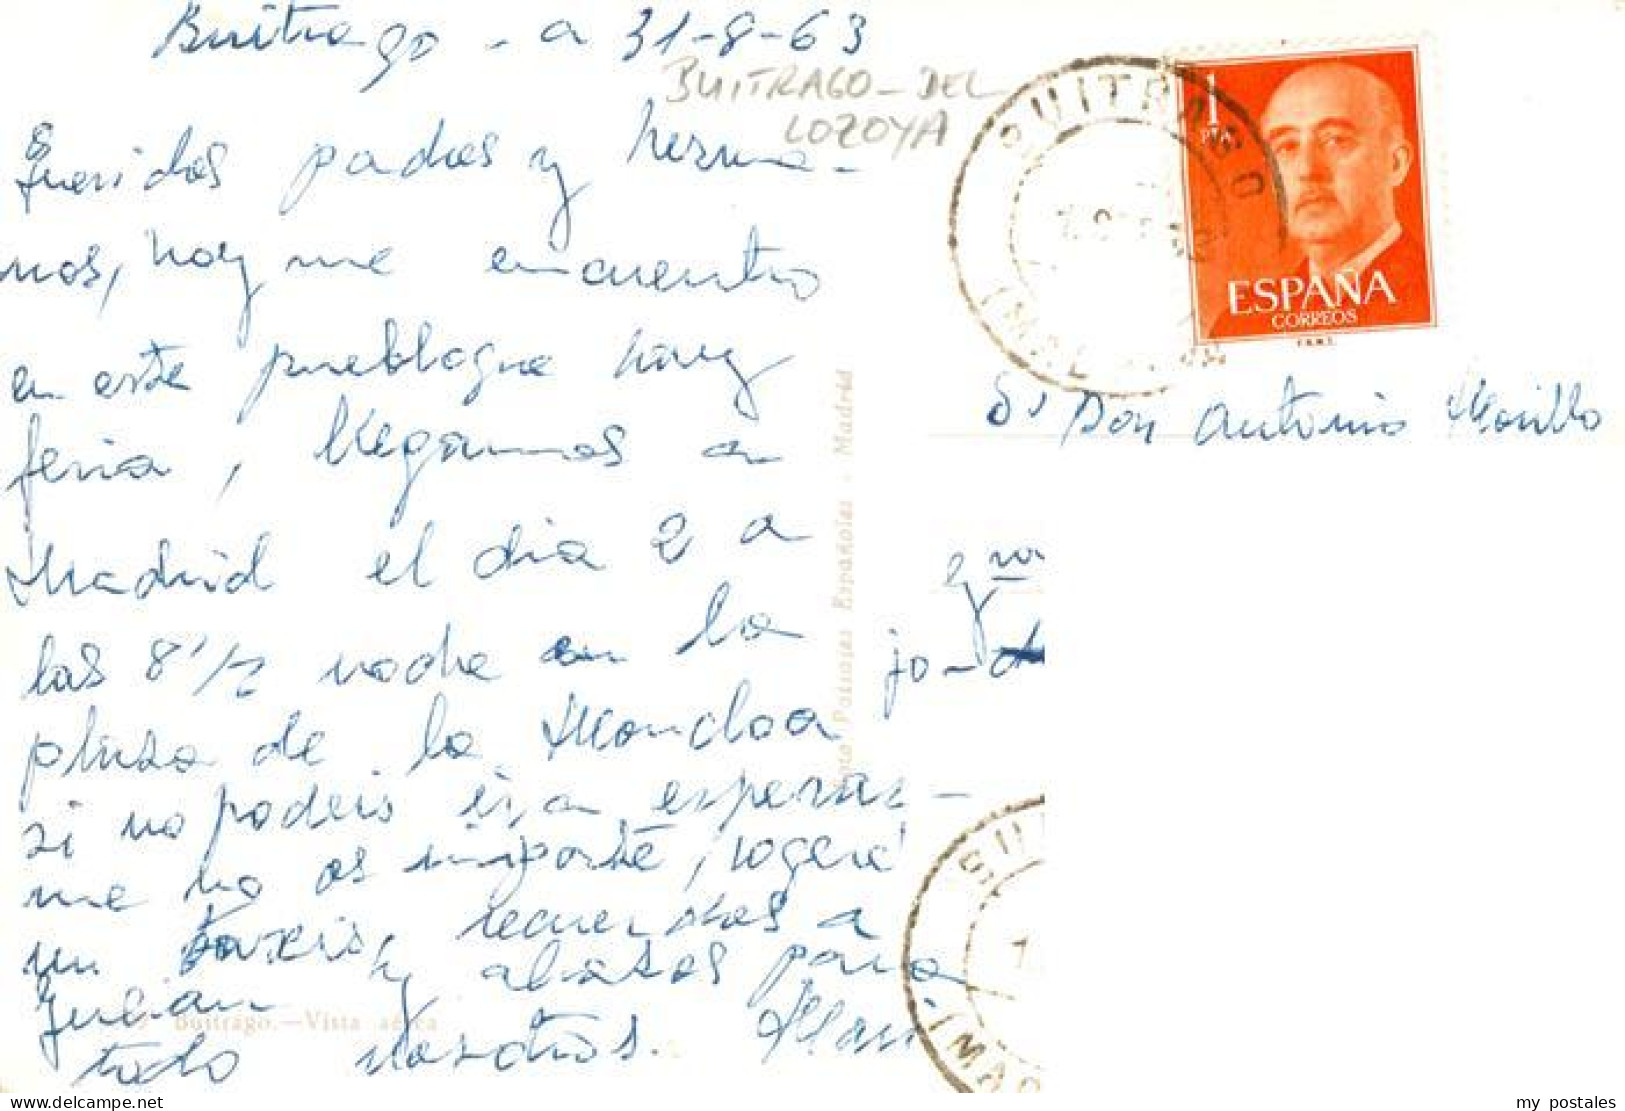 Buitrago - a 31-8-63
BUITRAGO-DEL
LOZOYA
Queridos padres y herma-
nos, hoy me encuentro
en este pueblo que hay
feria, llegamos a
Madrid el dia 2 a
las 8'1/2 noche en la
plaza de la Moncloa
si no podeis ir a esperar-
me no os importe, cogere
un taxis, recuerdos a
Julian y abrazos para
todo vosotros. Mari
Buitrago.—Vista aérea
Paisajes Españoles - Madrid
BUITRAGO
1
PTA
ESPAÑA
CORREOS
F.N.M.T.
Sr Don Antonio Morillo
jo-
BUI
(MAD
my postales